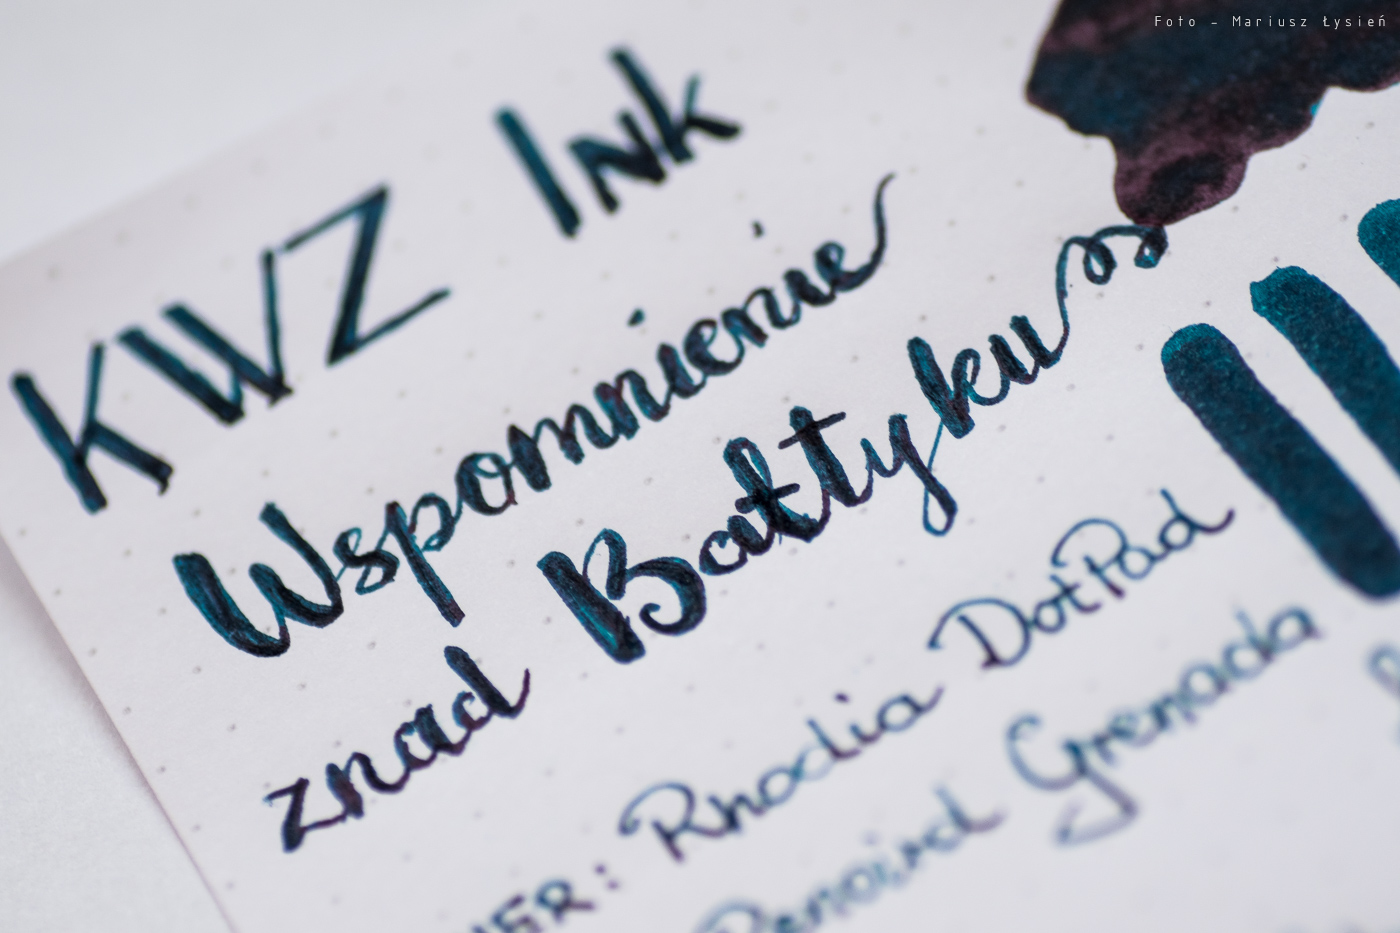 Foto - Mariusz Łysień
KWZ Ink
Wspomnienie
znad Bałtyku
Rhodia DotPad
Penaird Grenada